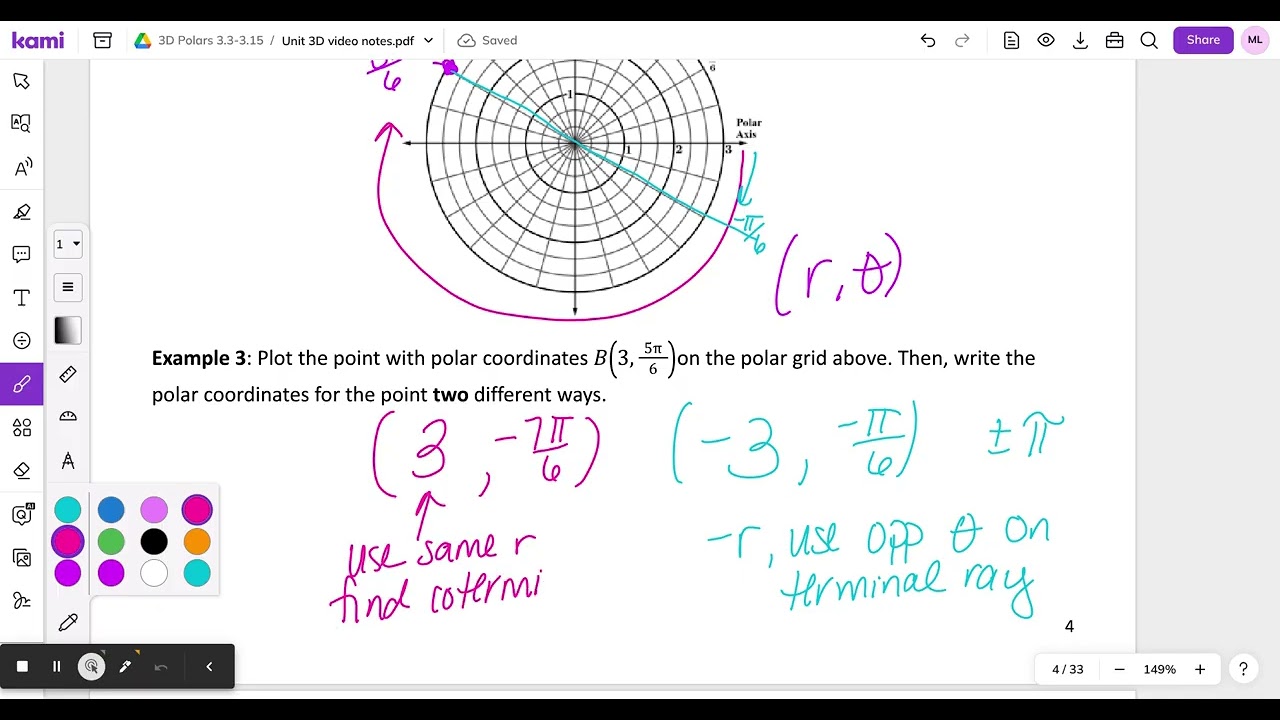 kami
3D Polars 3.3-3.15 / Unit 3D video notes.pdf
Saved
Share
ML
6
6
1
Polar
Axis
1
2
3
-π/6
(r, θ)
1
Example 3: Plot the point with polar coordinates B(3, 5π/6) on the polar grid above. Then, write the
polar coordinates for the point two different ways.
(3, -7π/6) (-3, -π/6) ± π
use same r
find cotermi
-r, use opp θ on
terminal ray
4
4 / 33
149%
?